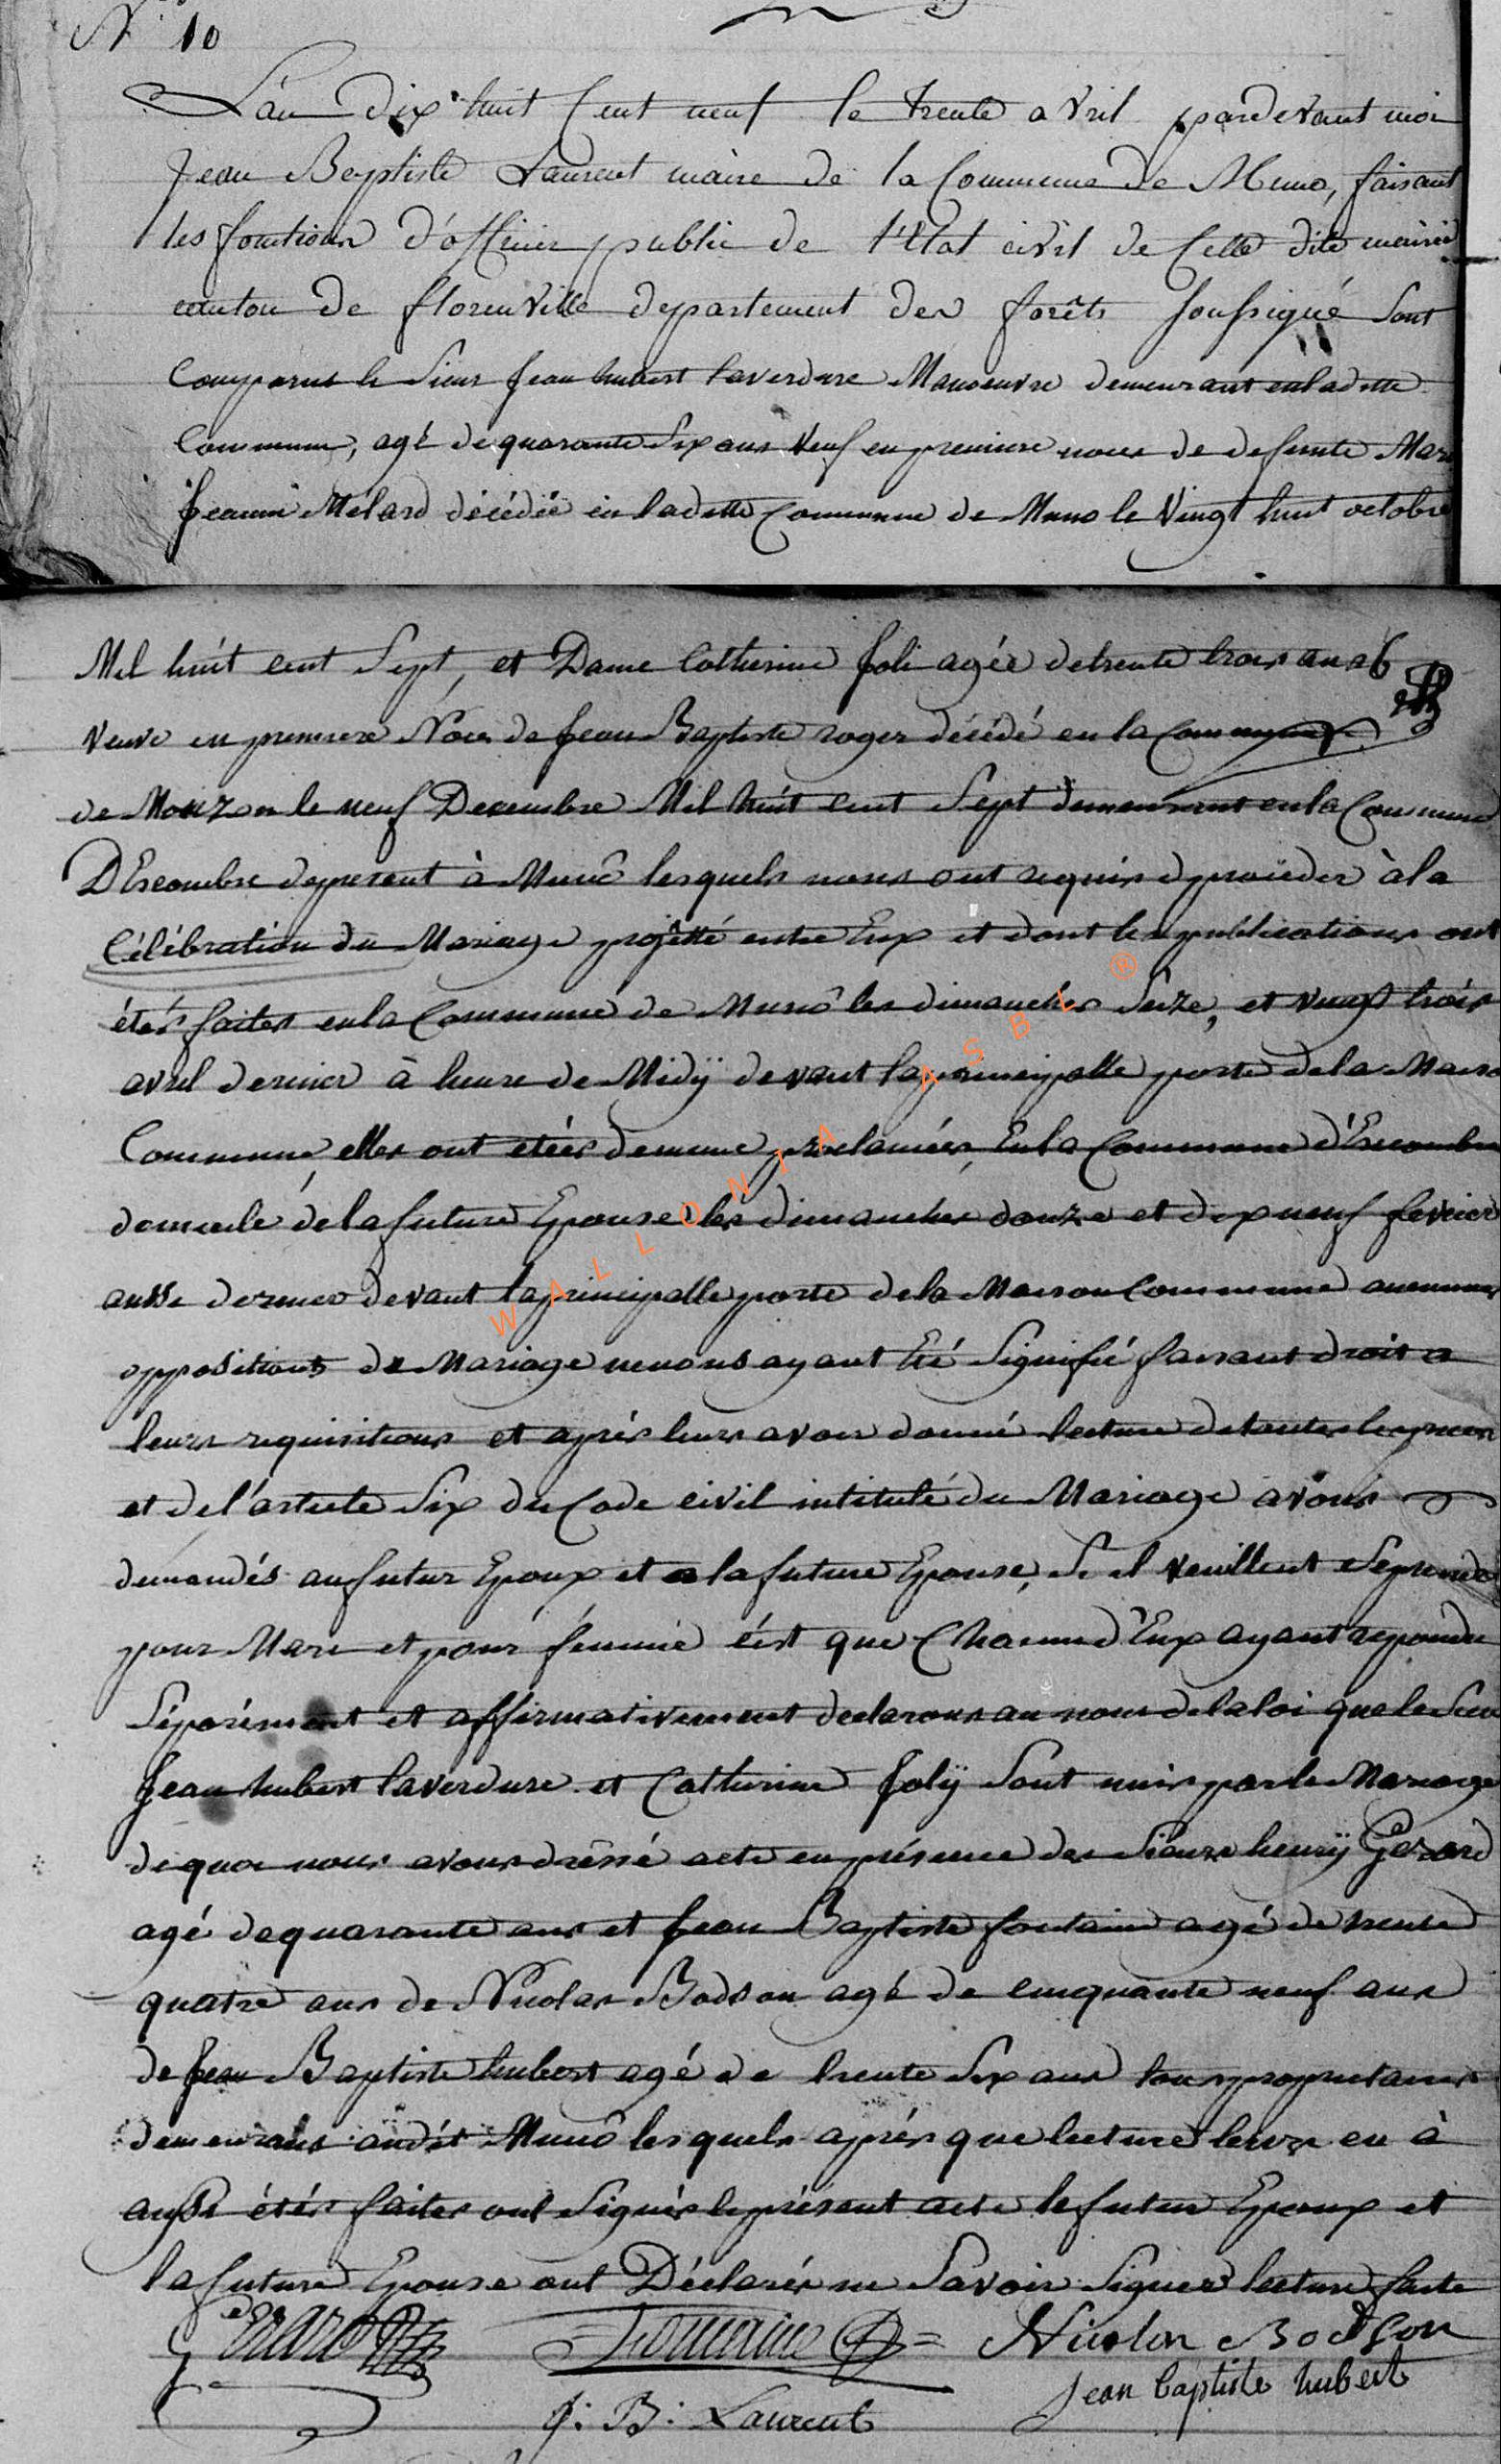 N° 10
L'an Dix huit Cent neuf le trente avril pardevant moi
Jean Baptiste Laurent maire de la Commune de Muno, faisant
les fonctions d'officier public de l'Etat civil de Cette dite mairie
canton de florenville departement des forêts soussigné sont
Comparus le Sieur Jean hubert laverdure Manoeuvre demeurant en ladette
Commune, agé de quarante six ans veuf en premiere noces de defunte Marie
Jeanne Mélard décédée en ladette Commune de Muno le Vingt huit octobre
Mil huit cent Sept, et Dame Catherine Joli agée de trente trois ans
veuve en premiere Noces de Jean Baptiste roger décédé en la Commune
de Mouzon le neuf Decembre Mil huit cent Sept demeurant en la Commune
D'Escombre dppresent à Muno lesquels nous ont requis dproceder à la
Célébration du Mariage projetté entre Eux et dont les publications ont
étés faites en la Commune de Muno les dimanches Seize, et vingt trois
avril dernier à heure de Midÿ devant la principalle porte de la Maison
Commune, elles ont etées demême proclamées, En la Commune d'Escombre
domicile de la future Epouse les dimanches douze et dix neuf fevrier
aussi dernier devant la principalle porte de la Maison Commune aucunnes
oppositions de Mariage ne nous ayant Eté Signifié faisant droit a
leurs requisitions et après leurs avoir donné lecture de toutes les pieces
et de l'article Six du Code civil intitulé du Mariage avons
demandés au futur Epoux et a la future Epouse, S'il veuillent se prendre
pour Mari et pour femme c'ést que Chacun d'Eux ayant repondu
Séparément et affirmativement declarons au nom de la loi que le Sieur
Jean hubert laverdure et Catherine Jolÿ Sont unis par le Mariage
de quoi nous avons dressé acte en présence des Sieurs henrÿ Gerard
agé de quarante ans et Jean Baptiste fontaine agé de trente
quatre ans de Nicolas Bodson agé de cinquante neuf ans
de Jean Baptiste hubert agé de trente Six ans tous proprietaires
demeurans audit Muno lesquels après que lecture leurs en à
aussi étés faites ont Signés le présent acte le futur Epoux et
la future Epouse ont Déclarés ne Savoir Signer lecture faite
Gerard Fontaine Nicolas Bodson
Jean baptiste hubert
J: B: Laurent
WALLONIA ASBL ®